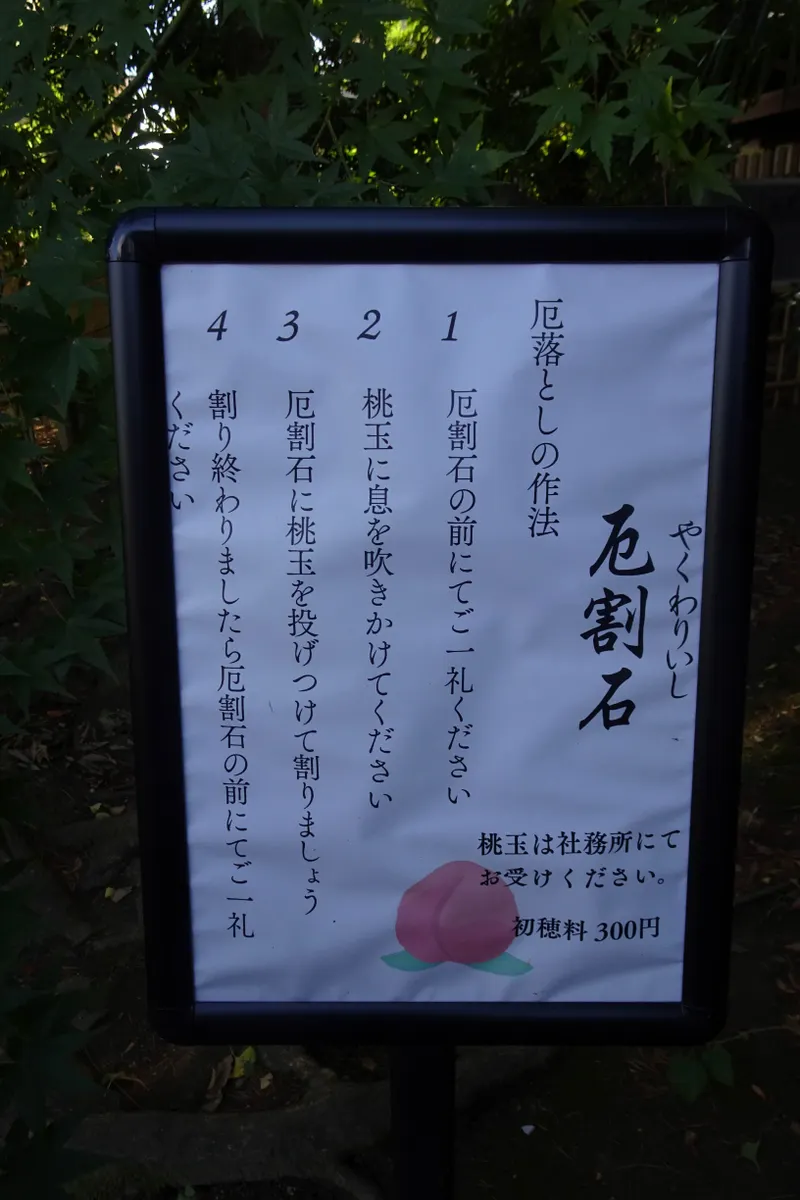 やくわりいし
厄割石
厄落としの作法
1 厄割石の前にてご一礼ください
2 桃玉に息を吹きかけてください
3 厄割石に桃玉を投げつけて割りましょう
4 割り終わりましたら厄割石の前にてご一礼
ください
桃玉は社務所にて
お受けください。
初穂料 300円